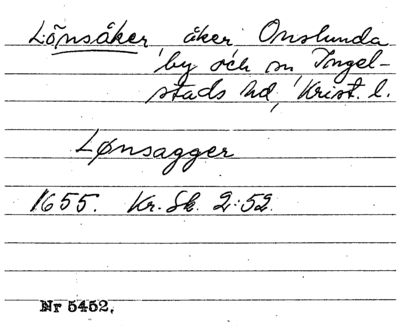 Lönsåker åker Onslunda
by och sn, Ingel-
stads hd, Krist. l.
Lønsagger
1655. Kr. Sk. 2:52.
Nr 5452.